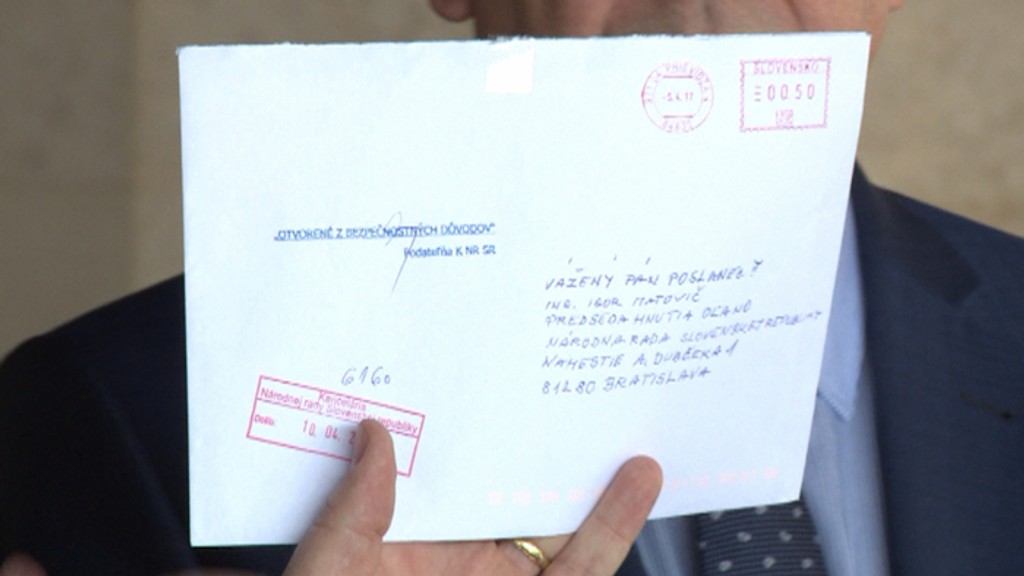 PRIEVIDZA 1
-5.4.17
SLOVENSKO
00.50
EUR
„OTVORENÉ Z BEZPEČNOSTNÝCH DÔVODOV“
Podateľňa K NR SR
VÁŽENÝ PÁN POSLANEC!
ING. IGOR MATOVIČ
PREDSEDA HNUTIA OĽANO
NÁRODNÁ RADA SLOVENSKEJ REPUBLIKY
NÁMESTIE A. DUBČEKA 1
812 80 BRATISLAVA
6160
Kancelária
Národnej rady Slovenskej republiky
Došlo:
10. 04. 2